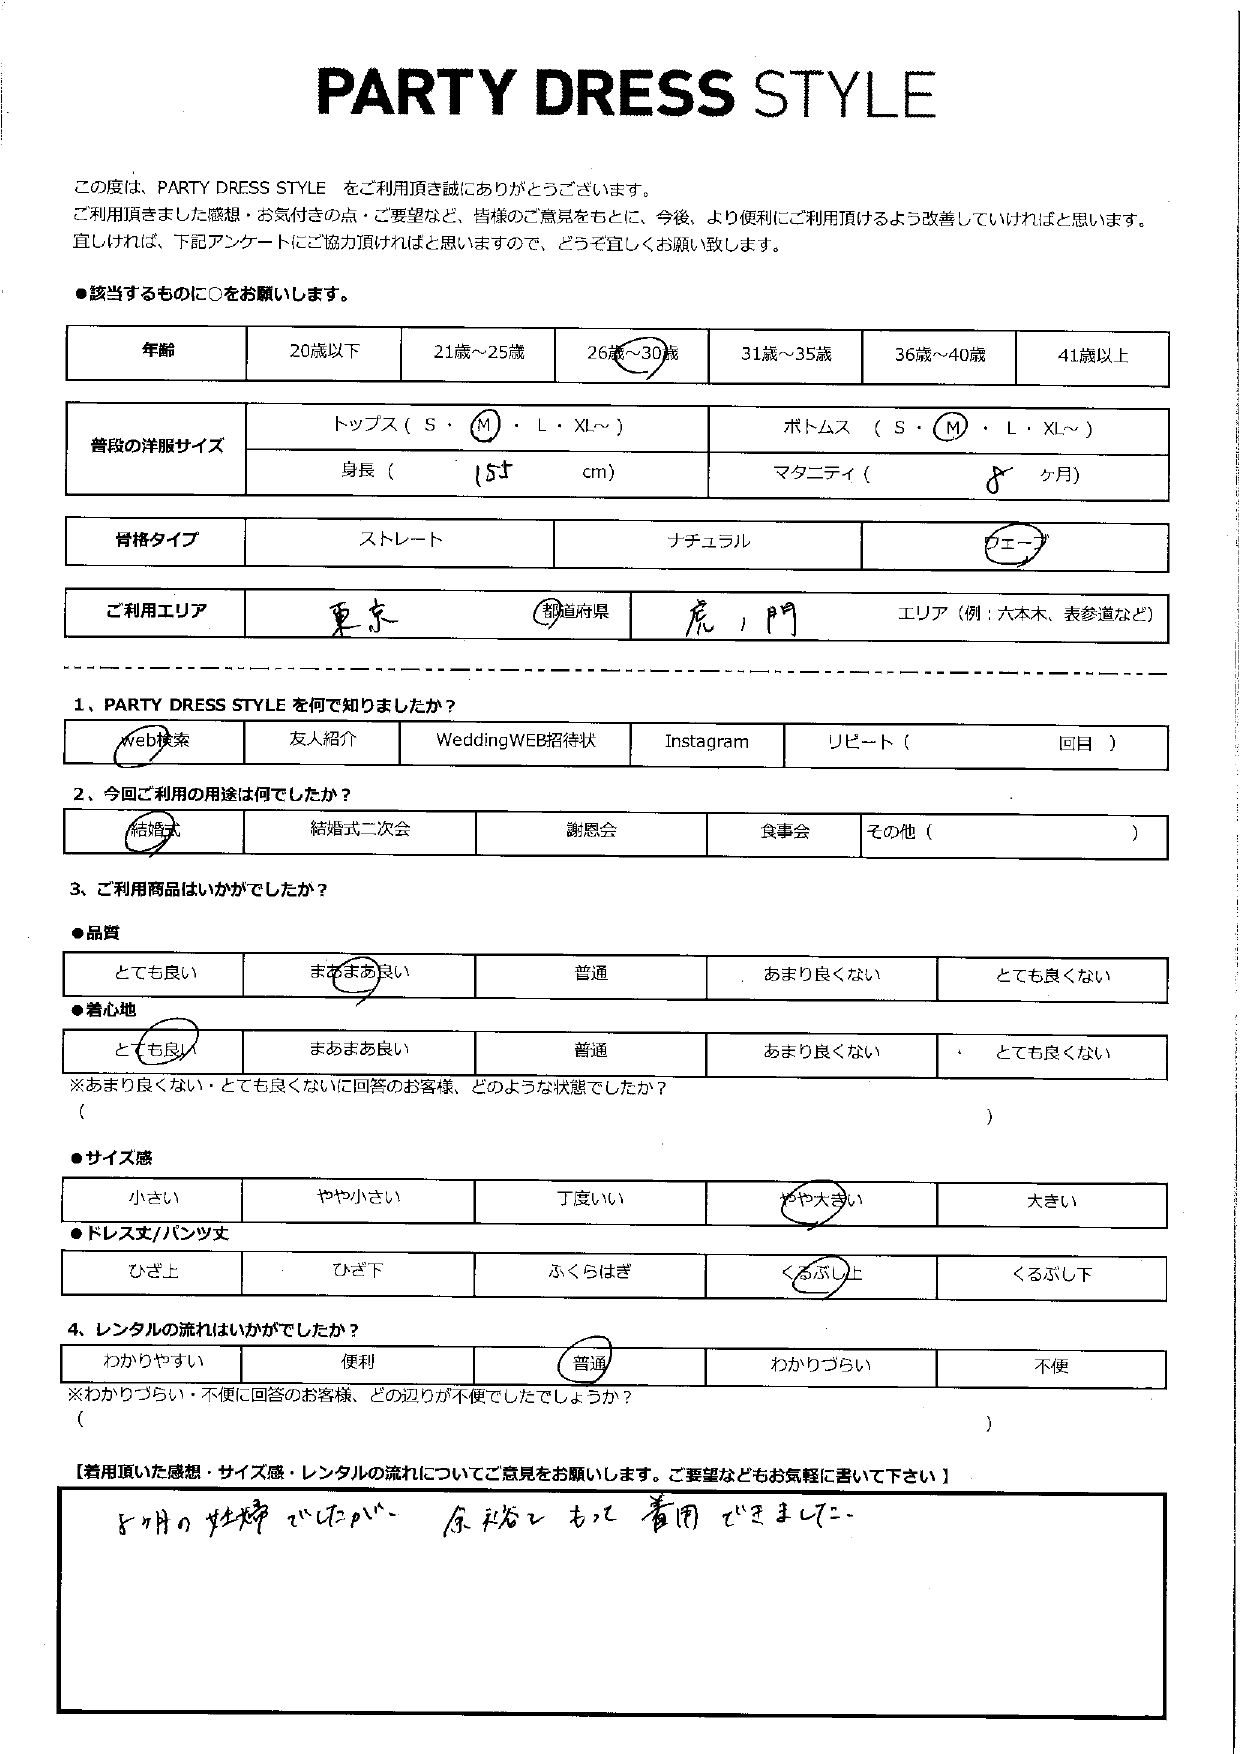 PARTY DRESS STYLE
この度は、PARTY DRESS STYLE をご利用頂き誠にありがとうございます。
ご利用頂きました感想・お気付きの点・ご要望など、皆様のご意見をもとに、今後、より便利にご利用頂けるよう改善していければと思います。
宜しければ、下記アンケートにご協力頂ければと思いますので、どうぞ宜しくお願い致します。
●該当するものに○をお願いします。
年齢 20歳以下 21歳～25歳 26歳～30歳 31歳～35歳 36歳～40歳 41歳以上
普段の洋服サイズ トップス ( S ・ M ・ L ・ XL～ ) ボトムス ( S ・ M ・ L ・ XL～ )
身長 ( 155 cm) マタニティ ( 8 ヶ月)
骨格タイプ ストレート ナチュラル ウェーブ
ご利用エリア 東京 都道府県 虎ノ門 エリア（例：六本木、表参道など）
1、PARTY DRESS STYLE を何で知りましたか？
web検索 友人紹介 WeddingWEB招待状 Instagram リピート ( 回目 )
2、今回ご利用の用途は何でしたか？
結婚式 結婚式二次会 謝恩会 食事会 その他 ( )
3、ご利用商品はいかがでしたか？
●品質
とても良い まあまあ良い 普通 あまり良くない とても良くない
●着心地
とても良い まあまあ良い 普通 あまり良くない とても良くない
※あまり良くない・とても良くないに回答のお客様、どのような状態でしたか？
( )
●サイズ感
小さい やや小さい 丁度いい やや大きい 大きい
●ドレス丈/パンツ丈
ひざ上 ひざ下 ふくらはぎ くるぶし上 くるぶし下
4、レンタルの流れはいかがでしたか？
わかりやすい 便利 普通 わかりづらい 不便
※わかりづらい・不便に回答のお客様、どの辺りが不便でしたでしょうか？
( )
【着用頂いた感想・サイズ感・レンタルの流れについてご意見をお願いします。ご要望などもお気軽に書いて下さい】
8ヶ月の妊婦でしたが、余裕をもって着用できました。